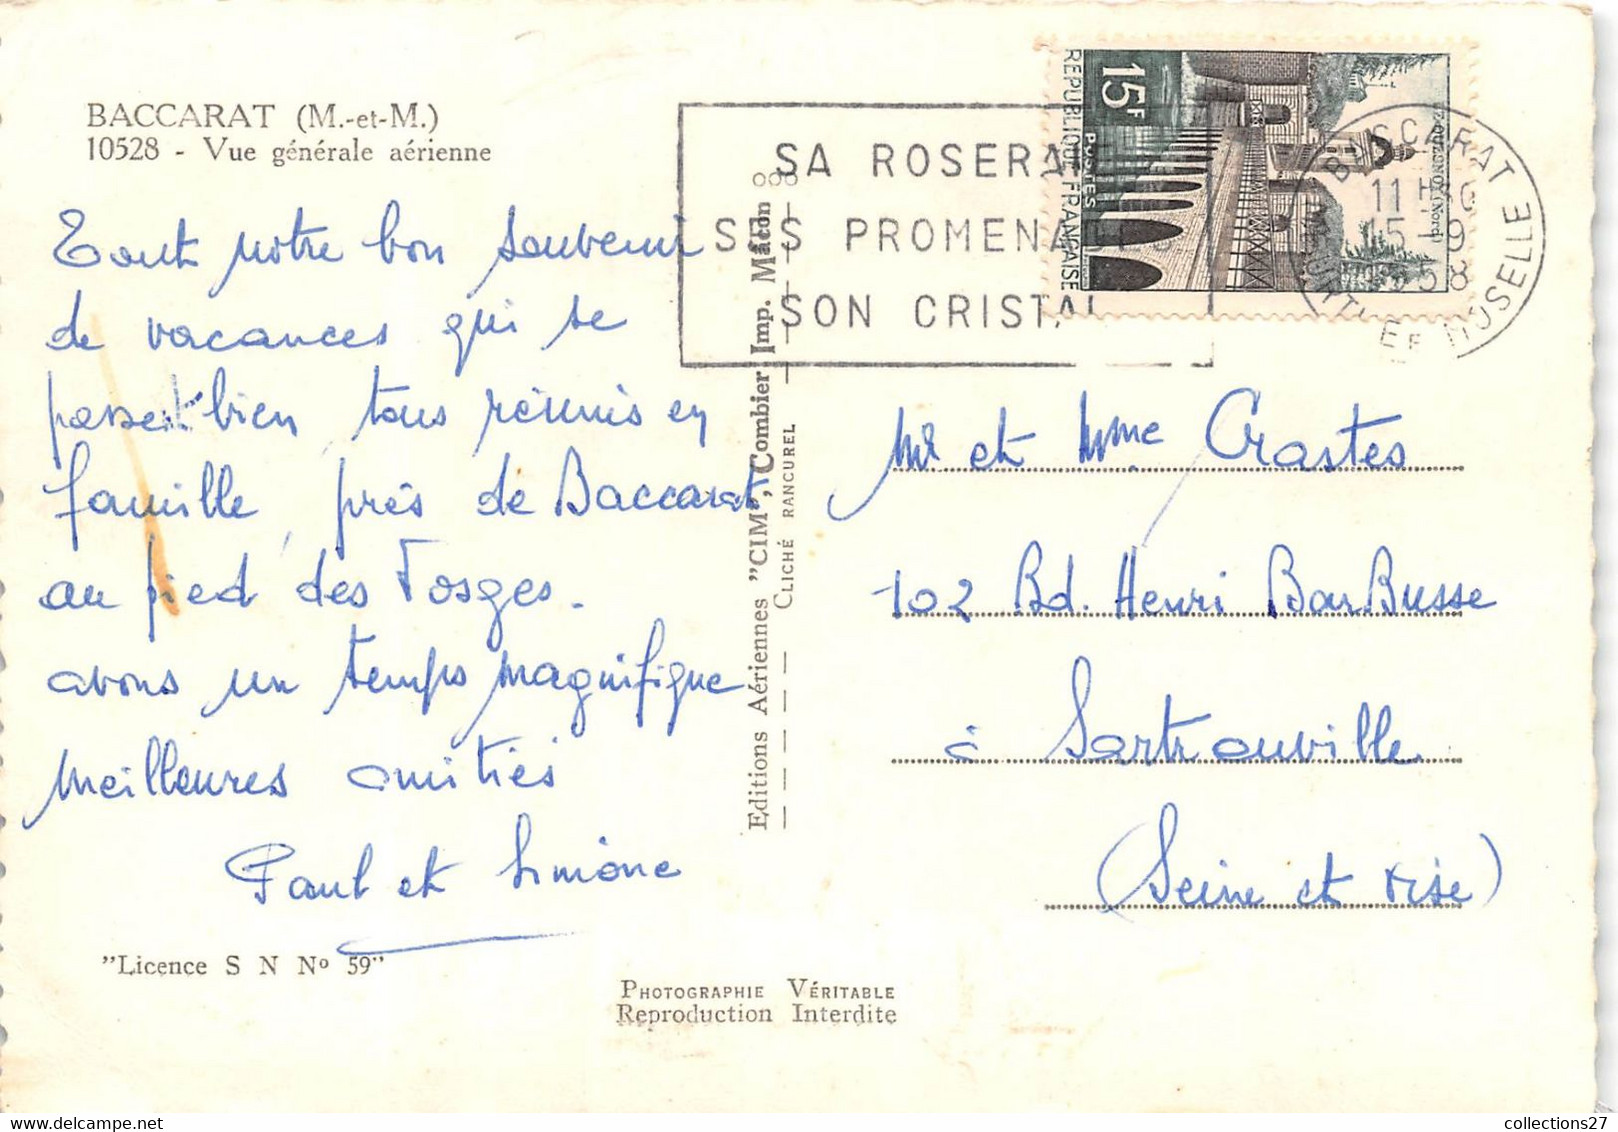 BACCARAT (M.-et-M.)
10528 - Vue générale aérienne
Tout notre bon souvenir
de vacances qui se
passent bien, tous réunis en
famille, près de Baccarat
au pied des Vosges.
avons un temps magnifique
Meilleures amitiés
Paul et Simone
"Licence S N Nº 59"
PHOTOGRAPHIE VÉRITABLE
Reproduction Interdite
Editions Aériennes "CIM", Combier Imp. Mâcon
CLICHÉ RANCUREL
SA ROSERAI
SES PROMENADE
SON CRISTAL
15F
POSTES
REPUBLIQUE FRANÇAISE
LE QUESNOY (Nord)
BACCARAT
11H30
15-9
1958
MEURTHE ET MOSELLE
Mr et Mme Crastes
102 Bd. Henri BarBusse
à Sartrouville
(Seine et Oise)
collections27